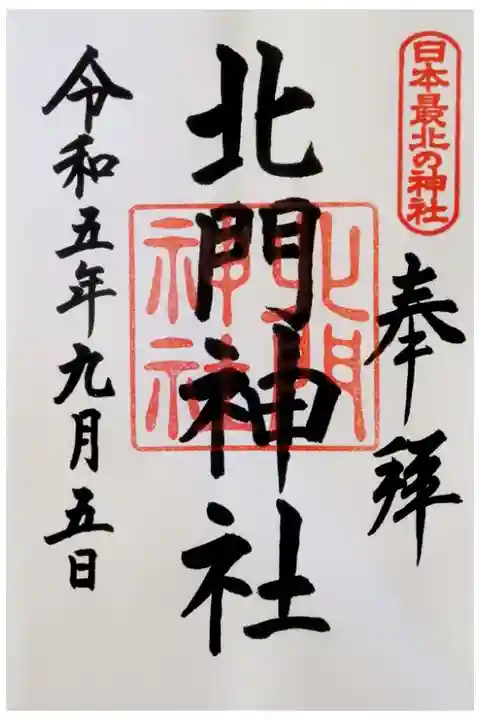 日本最北の神社
奉拝
北門神社
北門
神社
令和五年九月五日